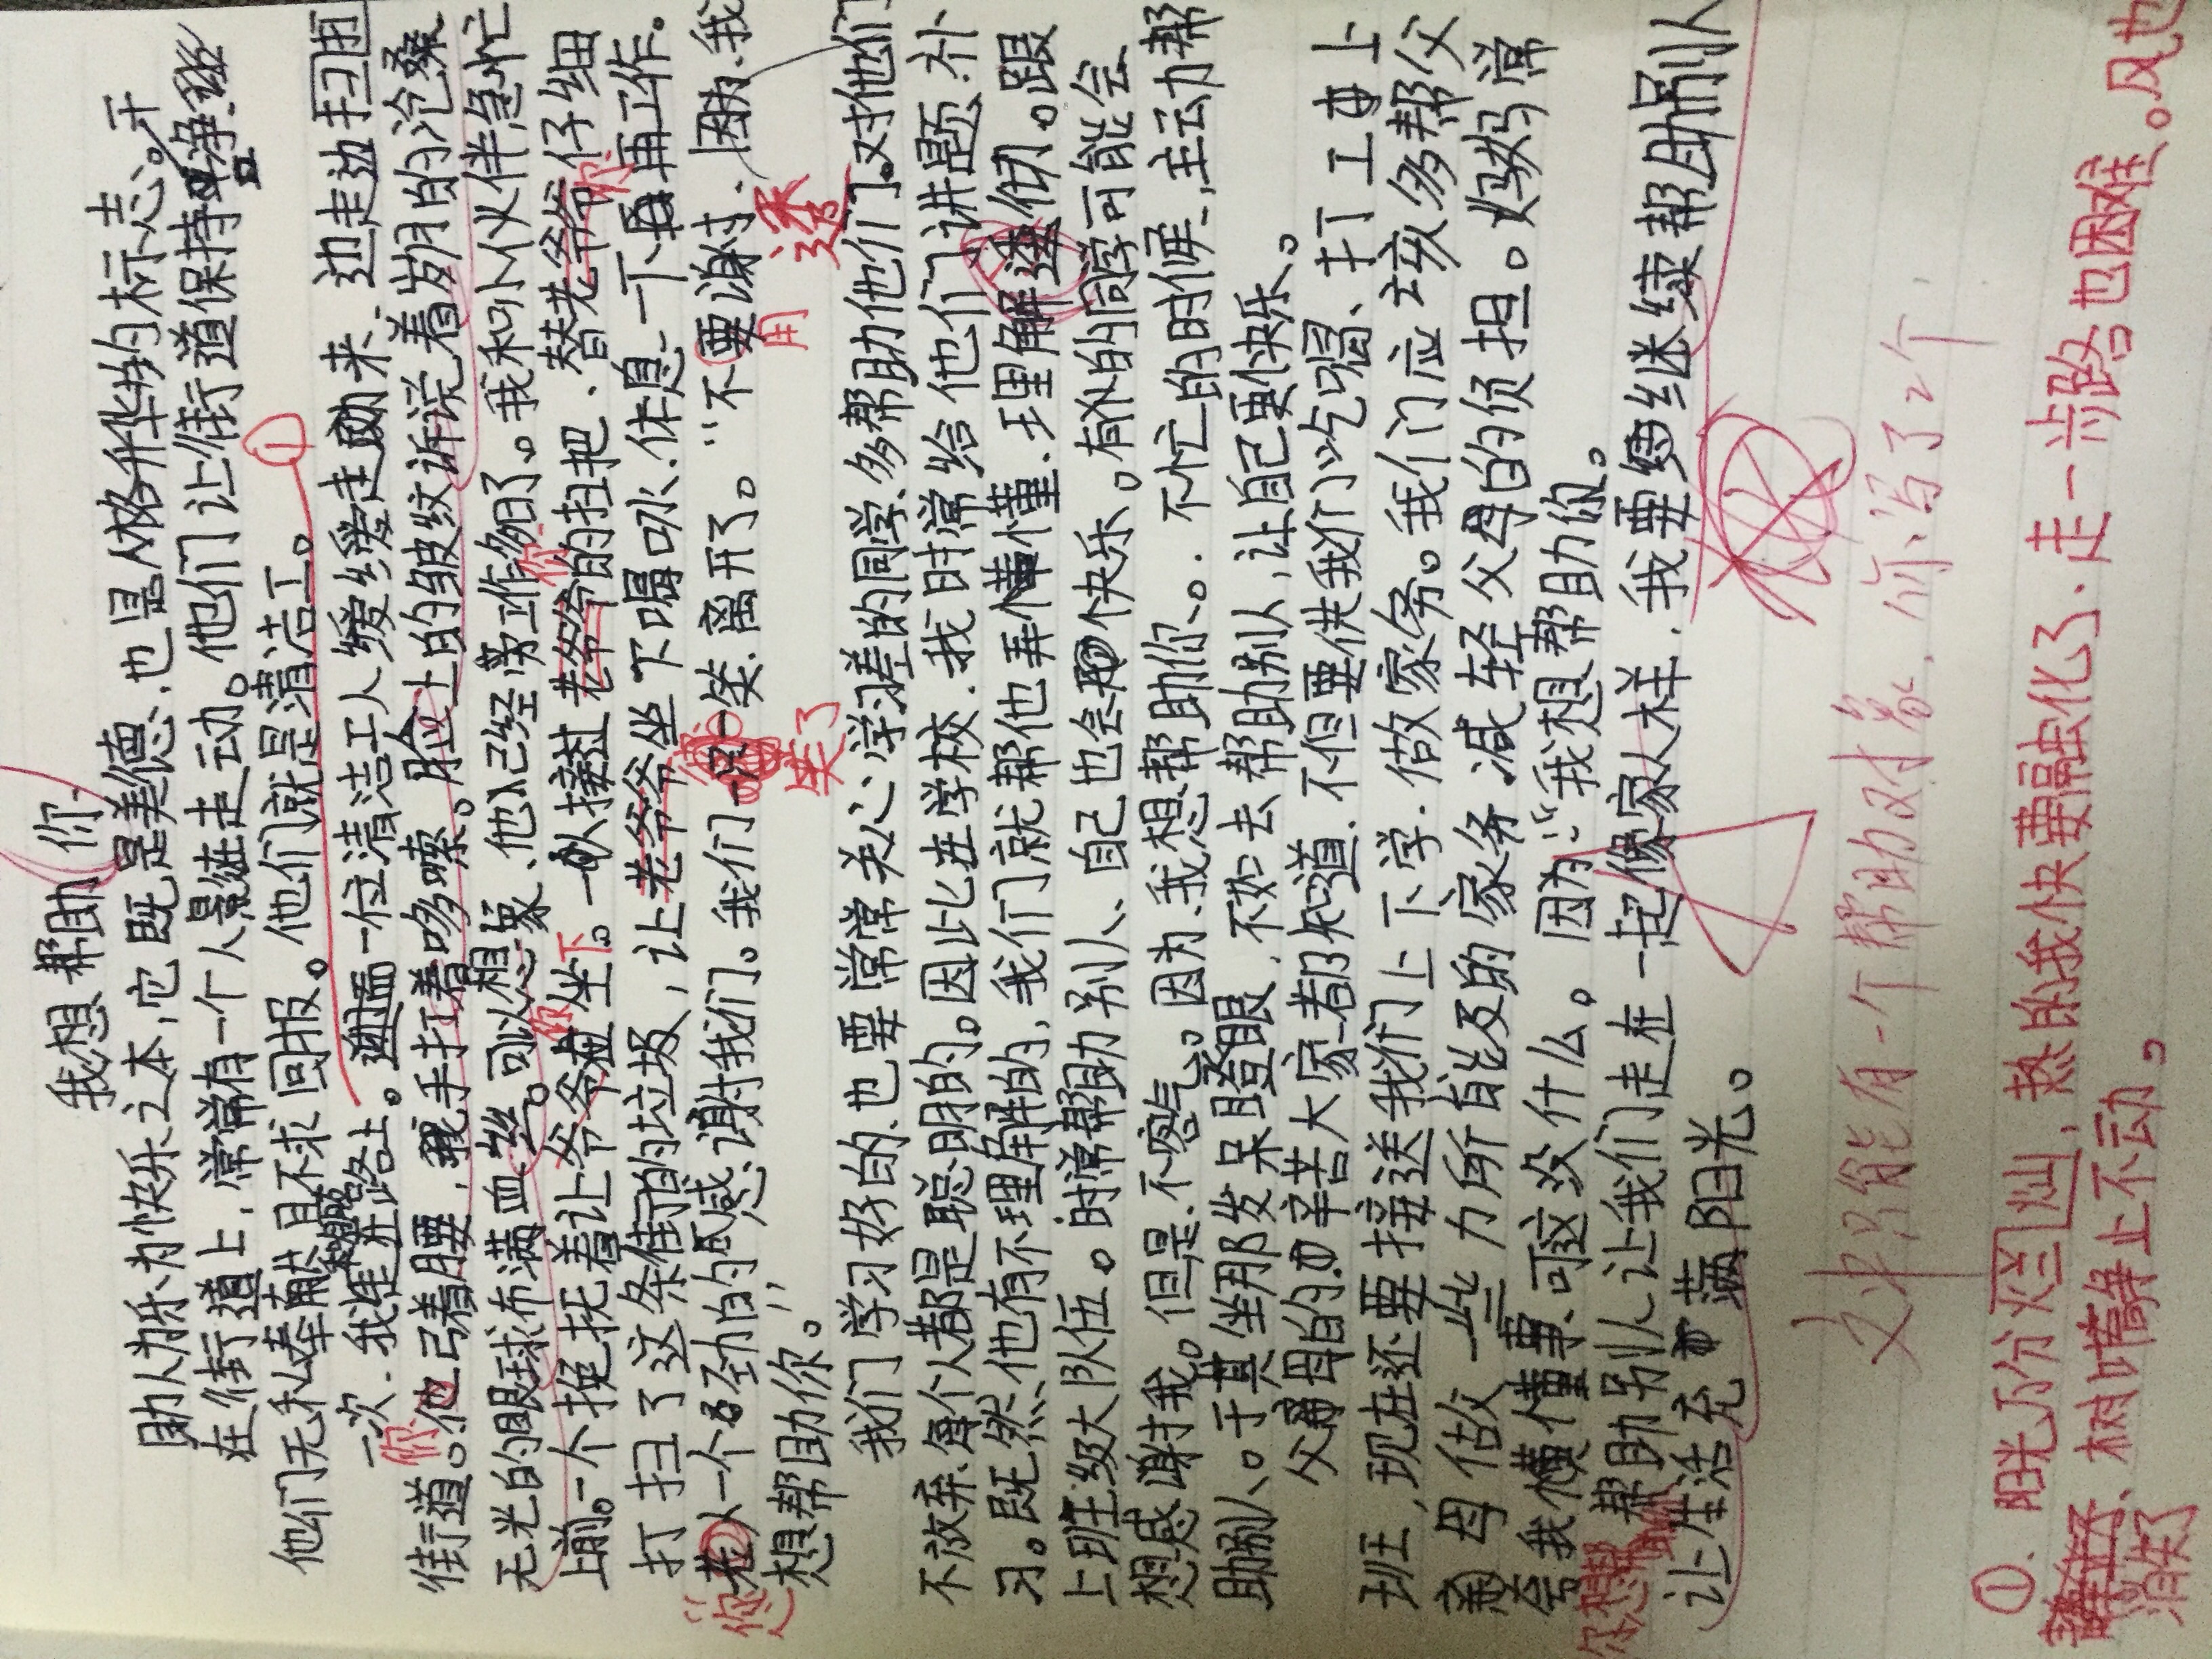 我想帮助你
助人为乐为快乐之本,它既是美德、也是人格升华的标志。
在街道上,常常有一个人影在走动。他们让街道保持
他们无私奉献且不求回报。他们就是清洁工。①
一次.我走在路上。迎面一位清洁工人缓缓走来.边走边扫
街道。你弓着腰,手打着哆嗦。脸上的皱纹诉说着岁月的沧桑
无光的眼球布满血丝。可以想象、他已经工作多日了。我和小伙伴急忙
上前。一个搀扶着让你坐下。一人接过你的扫把.替你仔细
打扫了这条街的垃圾,让老爷爷坐下喝口水.休息一下再工作。
您一个劲的感谢我们。我们笑了笑.离开了。“不用谢.因为.我
想帮助你。”
我们学习好的.也要常常关心学习差的同学.多帮助他们.对他们
不放弃.每个人都是聪明的。因此在学校.我时常给他们讲题.补
习。既然他有不理解的,我们就帮他弄懂.理解透彻。跟
上班级大队伍。时常帮助别人、自己也会快乐。有的同学可能会
想感谢我。但是.不客气。因为.我想帮助你。不忙的时候,主动帮
助别人。于其坐那发呆瞪眼,不如去帮助别人,让自己更快乐。
父母的辛苦大家都知道.不但要供我们吃喝、打工上
班,现在还要接送我们上下学.做家务。我们应该多帮父
母做一些力所能及的家务.减轻父母的负担。妈妈常
夸我懂事.可这没什么。因为:“我想帮助你。
帮助别人让我们走在一起像家人一样.我要继续帮助别人
让生活充满阳光。
文中只能有一个帮助对象.你写了2个.
①.阳光万分灿烂,热的我快要融化了.走一步路也困难。风也
消失了.树叶静止不动。